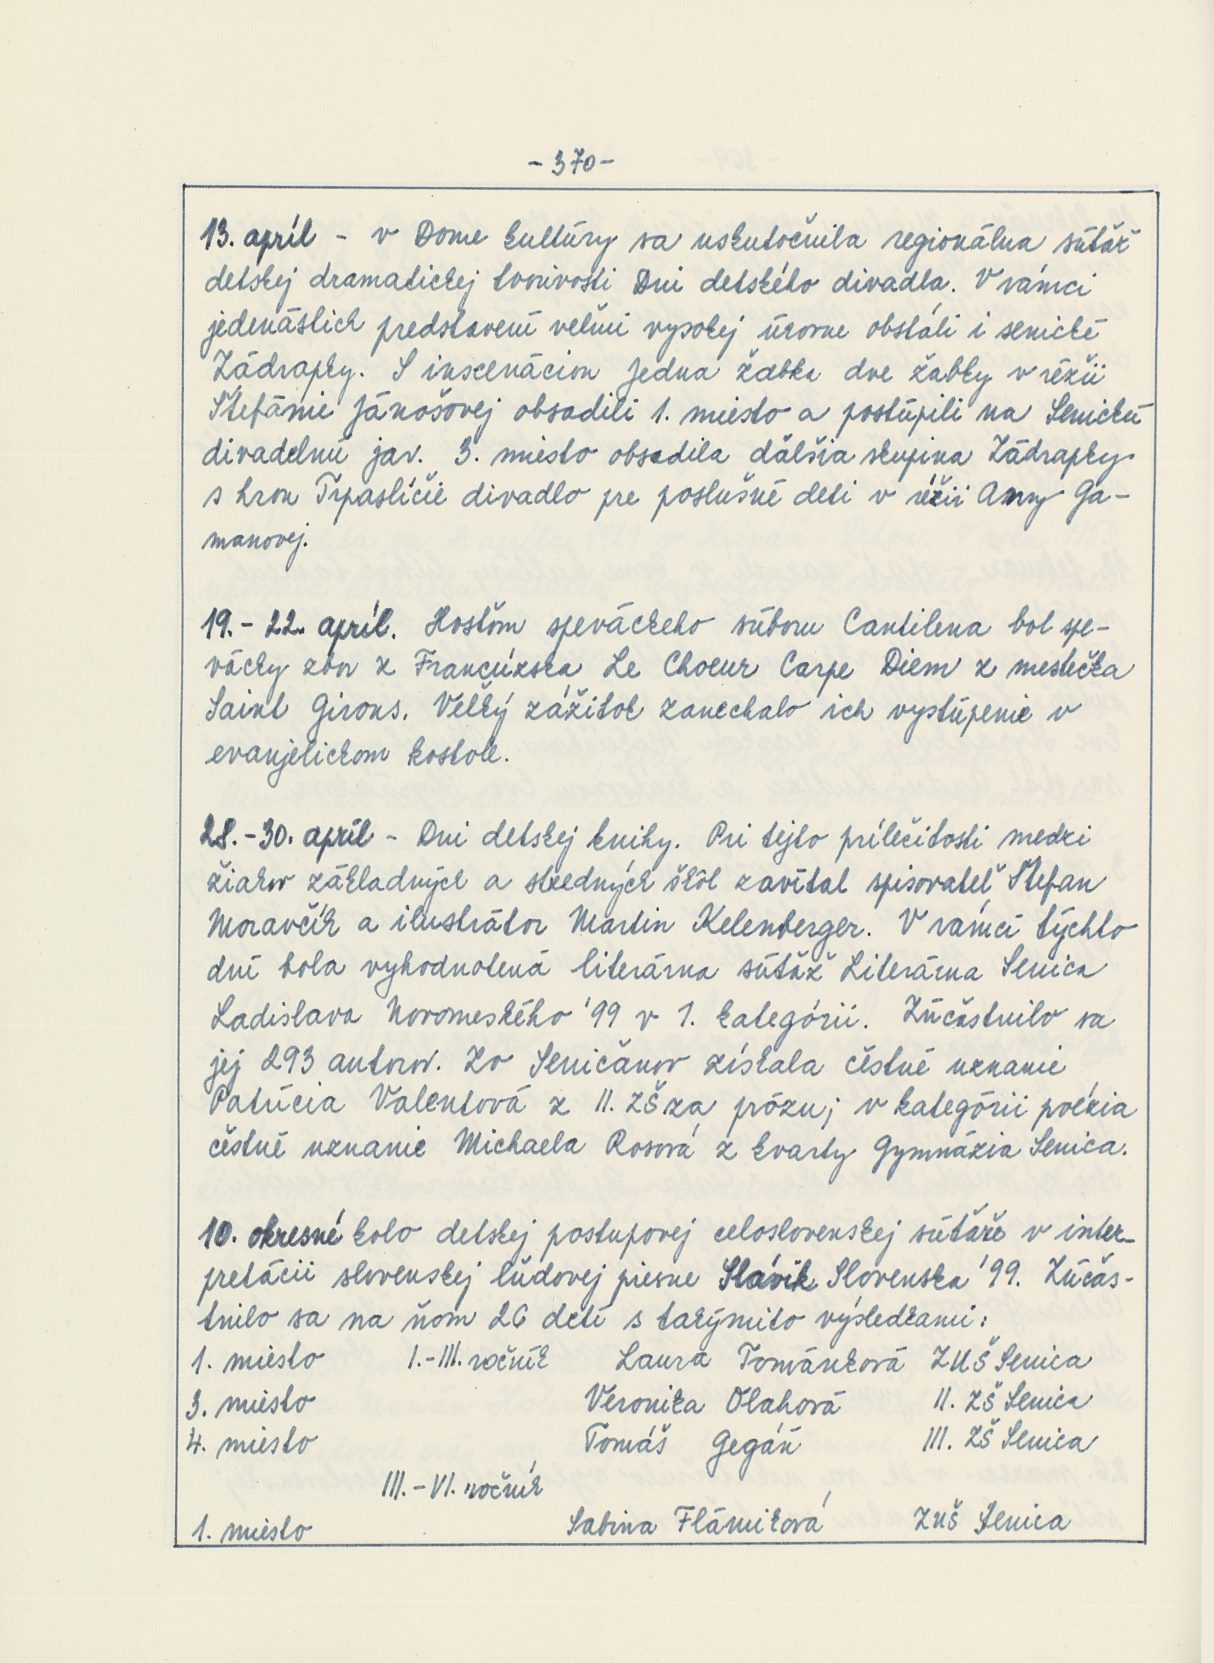 -370-
13. apríl - v Dome kultúry sa uskutočnila regionálna súťaž
detskej dramatickej tvorivosti Dni detského divadla. V rámci
jedenástich predstavení veľmi vysokej úrovne obstáli i senické
Zádrapky. S inscenáciou Jedna žabka dve žabky v réžii
Štefánie Jánošovej obsadili 1. miesto a postúpili na Senickú
divadelnú jar. 3. miesto obsadila ďalšia skupina Zádrapky
s hrou Trpasličie divadlo pre poslušné deti v réžii Anny Ga-
manovej.
19.-22. apríl. Hosťom speváckeho súboru Cantilena bol spe-
vácky zbor z Francúzska Le Choeur Carpe Diem z mestečka
Saint Girons. Veľký zážitok zanechalo ich vystúpenie v
evanjelickom kostole.
28.-30. apríl - Dni detskej knihy. Pri tejto príležitosti medzi
žiakov základných a stredných škôl zavítal spisovateľ Štefan
Moravčík a ilustrátor Martin Kelenberger. V rámci týchto
dní bola vyhodnotená literárna súťaž Literárna Senica
Ladislava Novomeského '99 v 1. kategórii. Zúčastnilo sa
jej 293 autorov. Zo Seničanov získala čestné uznanie
Patrícia Valentová z II. ZŠ za prózu; v kategórii poézia
čestné uznanie Michaela Rosová z kvarty Gymnázia Senica.
10. okresné kolo detskej postupovej celoslovenskej súťaže v inter-
pretácii slovenskej ľudovej piesne Slávik Slovenska '99. Zúčas-
tnilo sa na ňom 26 detí s takýmito výsledkami:
1. miesto I.-III. ročník Laura Tománková ZUŠ Senica
3. miesto Veronika Olahová II. ZŠ Senica
4. miesto Tomáš Gegáň III. ZŠ Senica
III.-VI. ročník
1. miesto Sabina Flámiková ZUŠ Senica